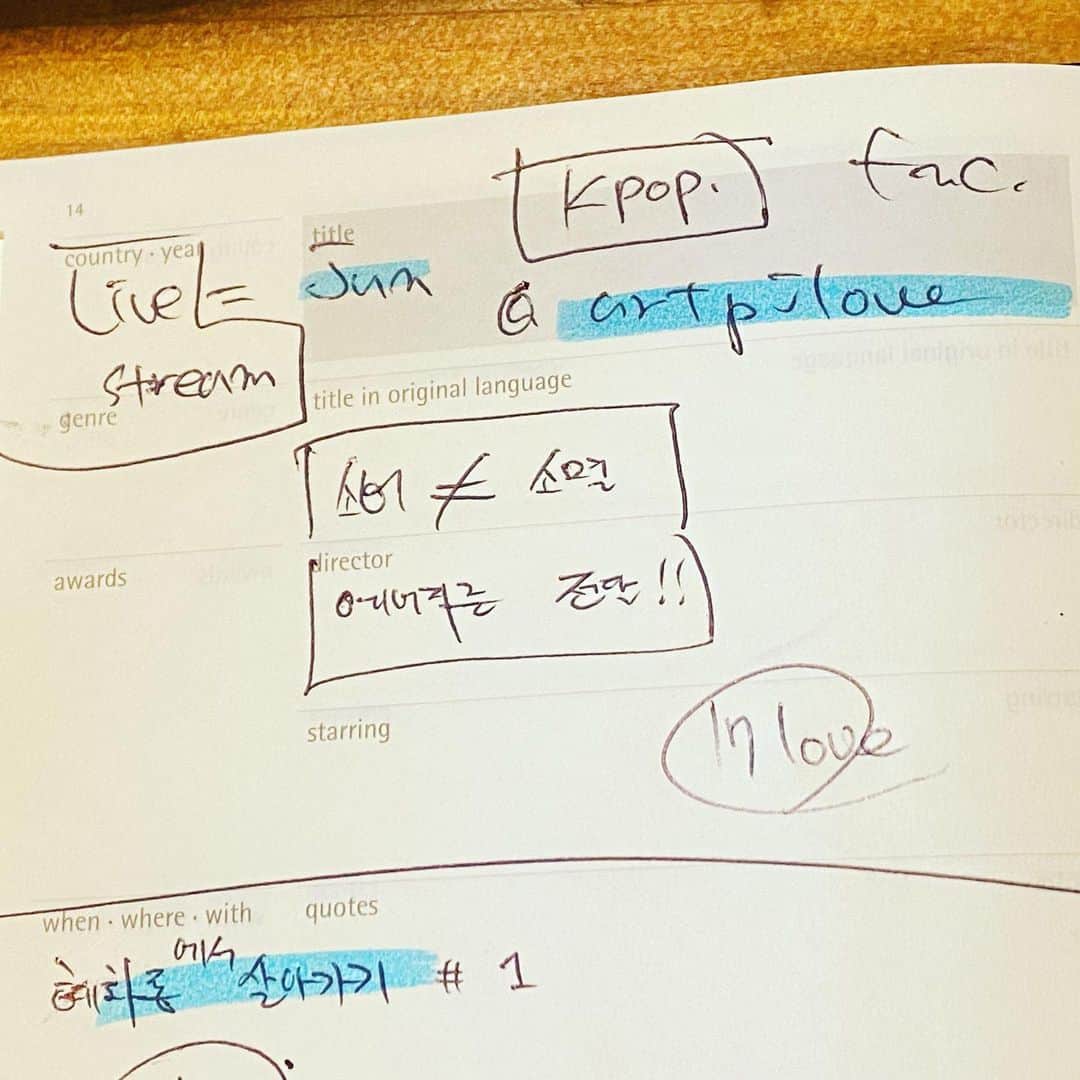 14
Kpop. fac.
country · year
title
Live
Jun @ artpilove
stream
genre
title in original language
소비 ≠ 소멸
awards
director
에너지는 전달!!
starring
In love
when · where · with
quotes
혜화동에서 살아가기 # 1